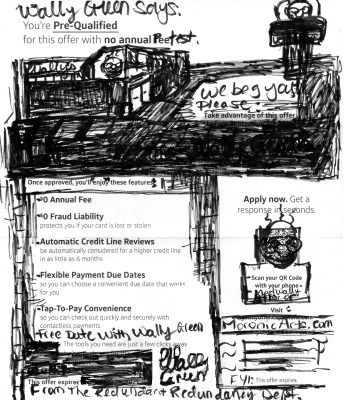 Wally Green Says:
You're Pre-Qualified
for this offer with no annual Feetest.
Wally's
We beg you
Please:
Take advantage of this offer
Once approved, you'll enjoy these features:
$0 Annual Fee
$0 Fraud Liability
protects you if your card is lost or stolen
Automatic Credit Line Reviews
be automatically considered for a higher credit line
in as little as 6 months
Flexible Payment Due Dates
so you can choose a convenient due date that works
for you
Tap-To-Pay Convenience
so you can check out quickly and securely with
contactless payments
Free Date With Wally Green
The tools you need are just a few clicks away
Wally
Green
This offer expires
Apply now. Get a
response in seconds.
Scan your QR Code
with your phone
Visit
MoronicArts.com
FYI: This offer expires
From The Redundant Redundancy Dept.